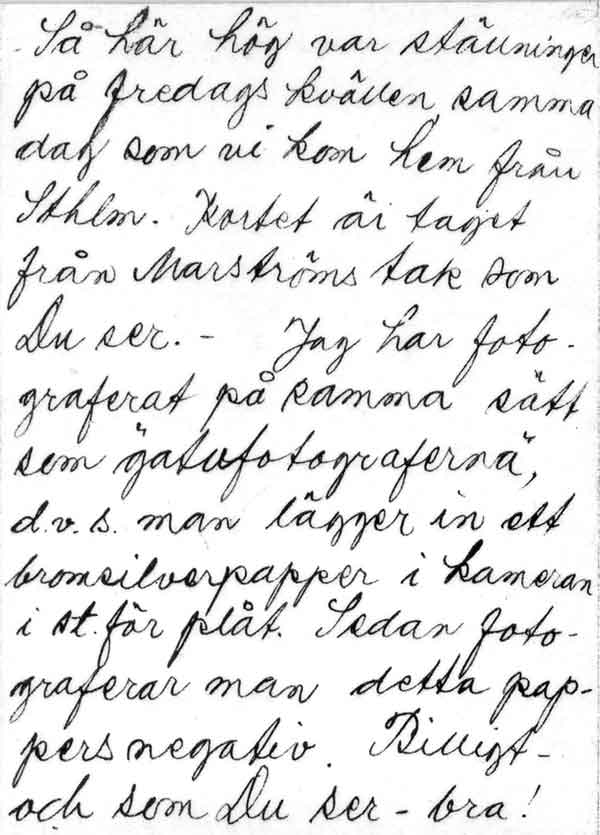 Så här hög var ställningen
på fredags kvällen, samma
dag som vi kom hem från
Sthlm. Kortet är taget
från Marströms tak som
Du ser. – Jag har foto-
graferat på samma sätt
som "gatufotograferna",
d.v.s. man lägger in ett
bromsilverpapper i kameran
i st. för plåt. Sedan foto-
graferar man detta pap-
persnegativ. Billigt –
och som Du ser – bra!